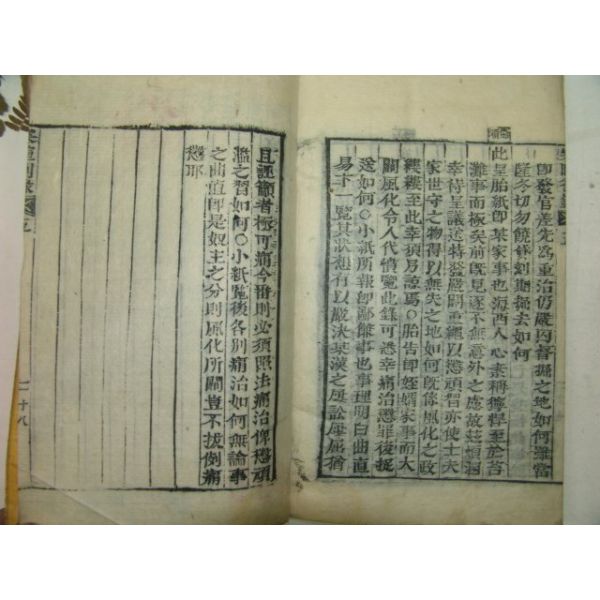 即發官差先爲重治仍嚴囚督掘之地如何雖當
隆冬切勿饒貸刻期掘去如何
此呈胎紙卽某家事也海西人心素稱獰悍至於
灘事而極矣前旣見逐不無意外之慮故玆煩洞
幸待呈議送特發嚴關重繩以懲頑習亦使士夫
家世守之物得以無失之地如何旣係風化之政
縷縷至此幸須另諒焉○胎告卽姪婿家事而大
關風化令人代憤覽此錄可悉幸痛治懲罪後捉
送如何○小紙所報卽鄙廉事也事理明白曲直
易卞一覽其狀想有以嚴決某漢之屢訟屢屈猶
且誣籲者極可痛今番則必須照法痛治俾懲頑
濫之習如何○小紙覽後各別痛治如何無論事
之曲直卽是奴主之分則風化所關豈不拔倒痛
懲耶
二十八